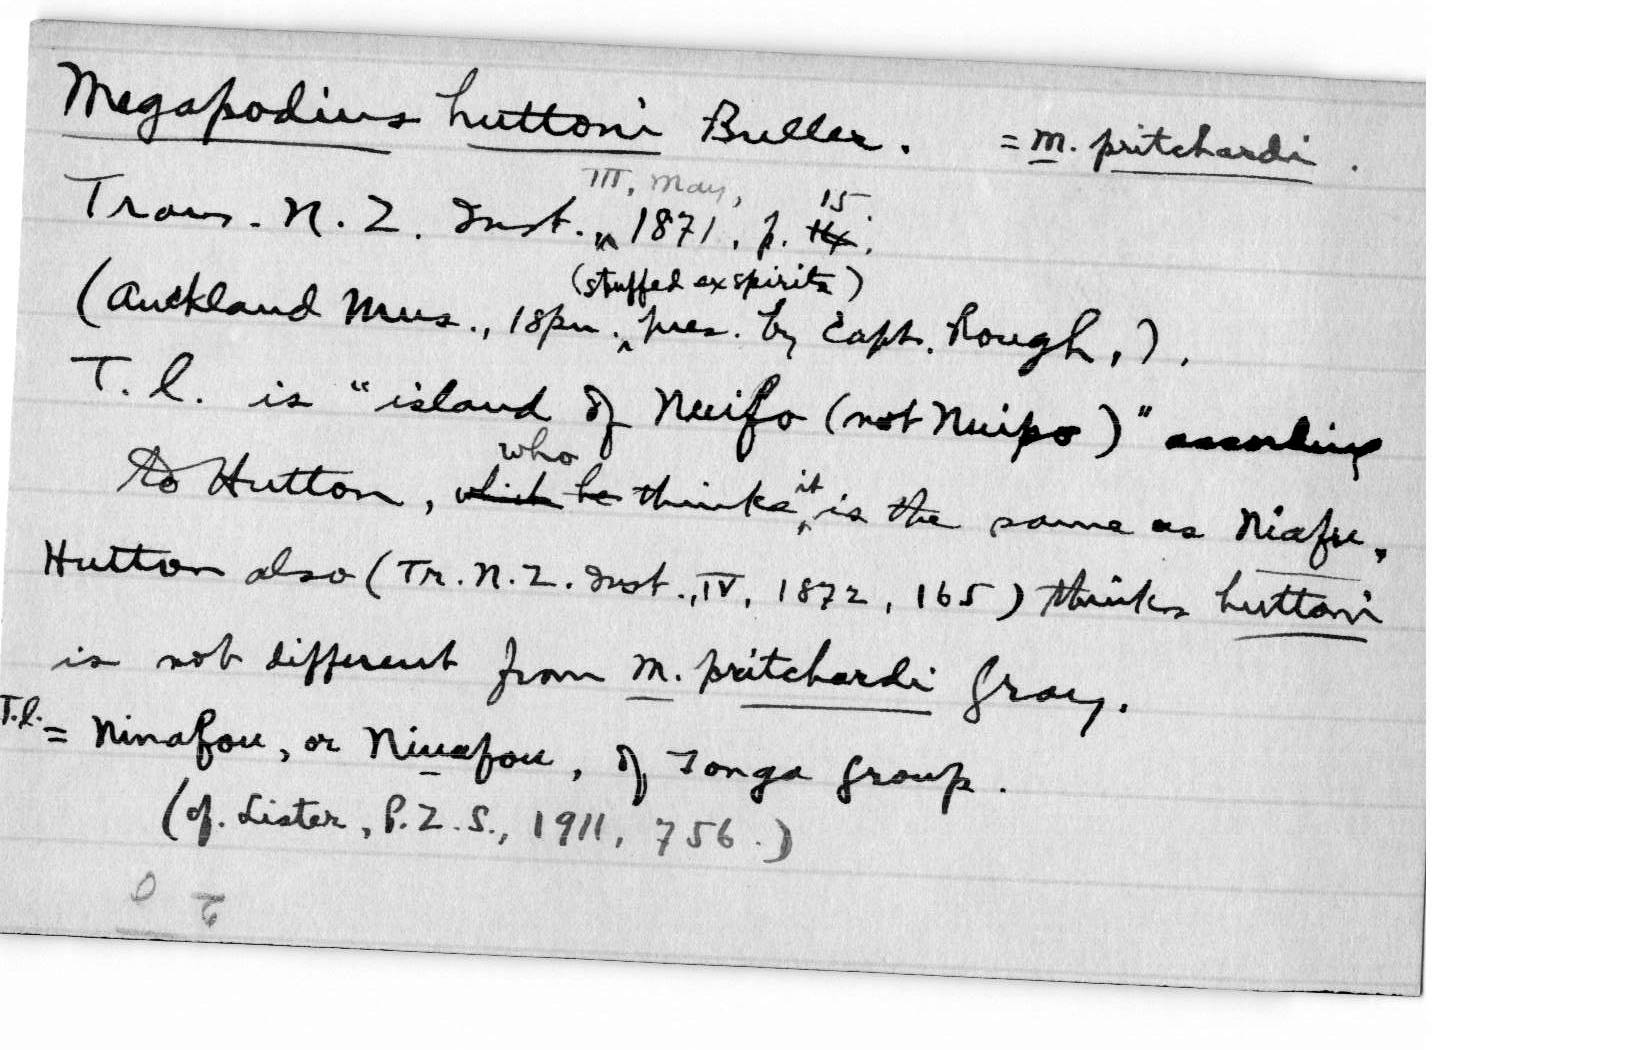 Megapodius huttoni Buller. = M. pritchardi.
III, May, 15
Trans. N. Z. Inst., 1871, p. 14.
(stuffed ex spirits)
(Auckland Mus., 1 spm., pres. by Capt. Rough,).
T. l. is "island of Nuifo (not Nuipo)" according
who it
to Hutton, which he thinks is the same as Niafu.
Hutton also (Tr. N. Z. Inst., IV, 1872, 165) thinks huttoni
is not different from M. pritchardi Gray.
T.l. = Ninafou, or Niuafou, of Tonga group.
(cf. Lister, P. Z. S., 1911, 756.)